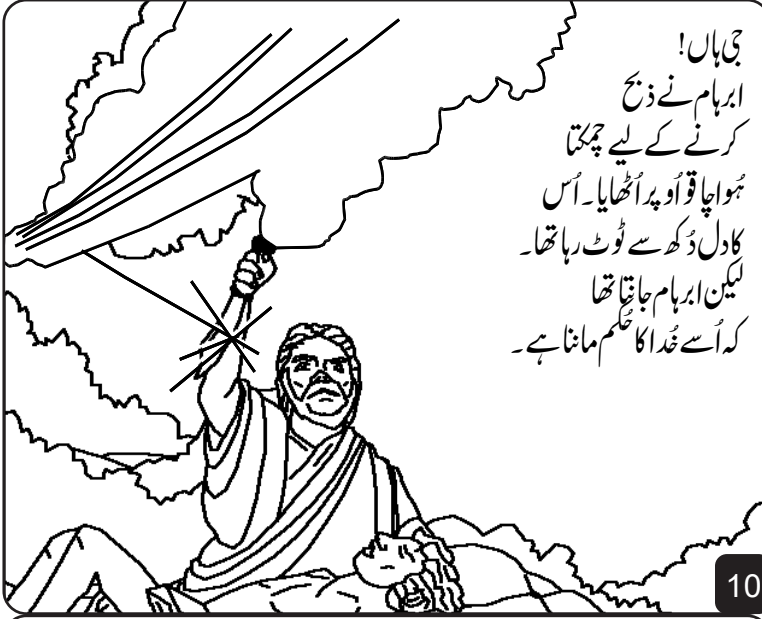 جی ہاں!
ابرہام نے ذبح
کرنے کے لیے چمکتا
ہُوا چاقو اُوپر اُٹھایا۔ اُس
کا دل دُکھ سے ٹوٹ رہا تھا۔
لیکن ابرہام جانتا تھا
کہ اُسے خُدا کا حُکم ماننا ہے۔
10